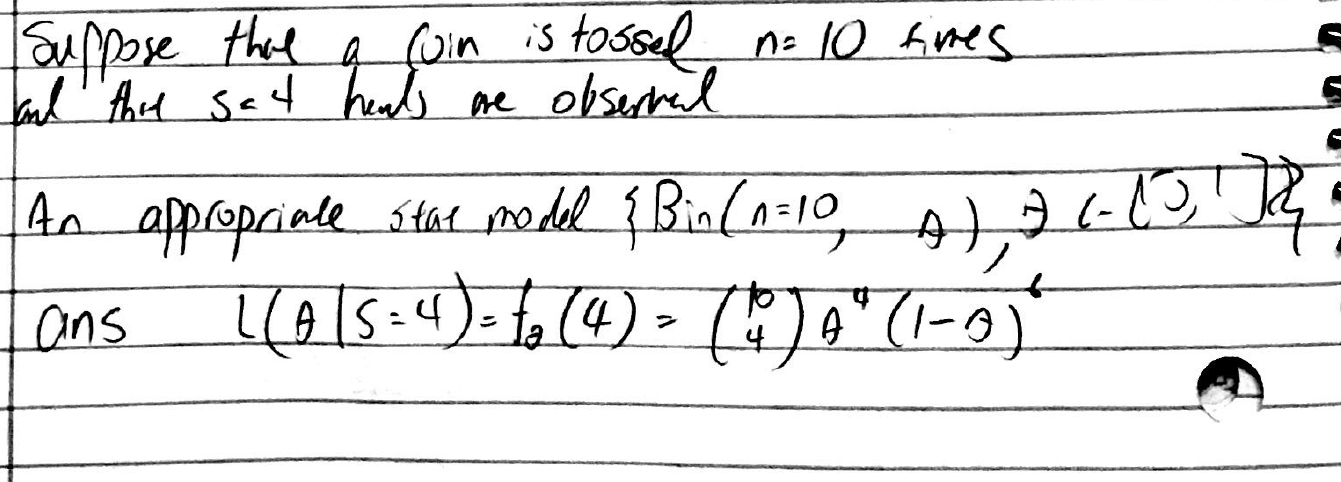 Suppose that a coin is tossed n=10 times
and that s=4 heads are observed
An appropriate stat model {Bin(n=10, θ), θ ∈ [0,1]}
ans L(θ|s=4)=f_θ(4) = (10 4) θ^4 (1-θ)^6